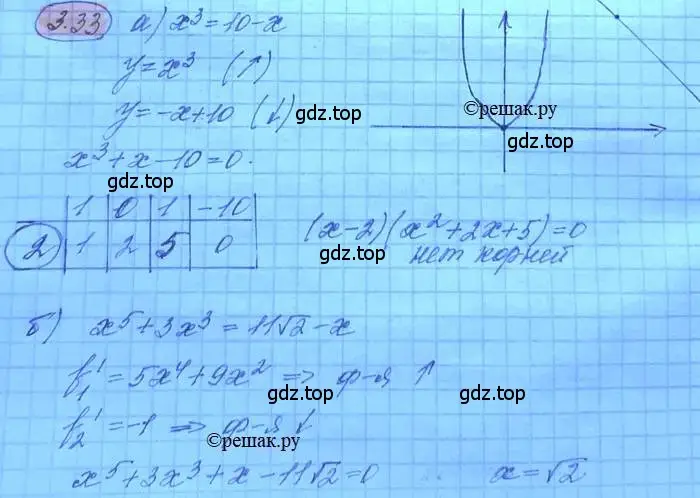 3.33 а) x³=10-x
y=x³ (↑)
y=-x+10 (↓)
gdz.top
©решак.ру
gdz.top
x³+x-10=0.
gdz.top
1 | 0 | 1 | -10
2 | 1 | 2 | 5 | 0
(x-2)(x²+2x+5)=0
нет корней
gdz.top
б) x⁵+3x³=11√2-x
f₁'=5x⁴+9x² => ф-я ↑
gdz.top
gdz.top
f₂'=-1 => ф-я ↓
©решак.ру
x⁵+3x³+x-11√2=0 x=√2